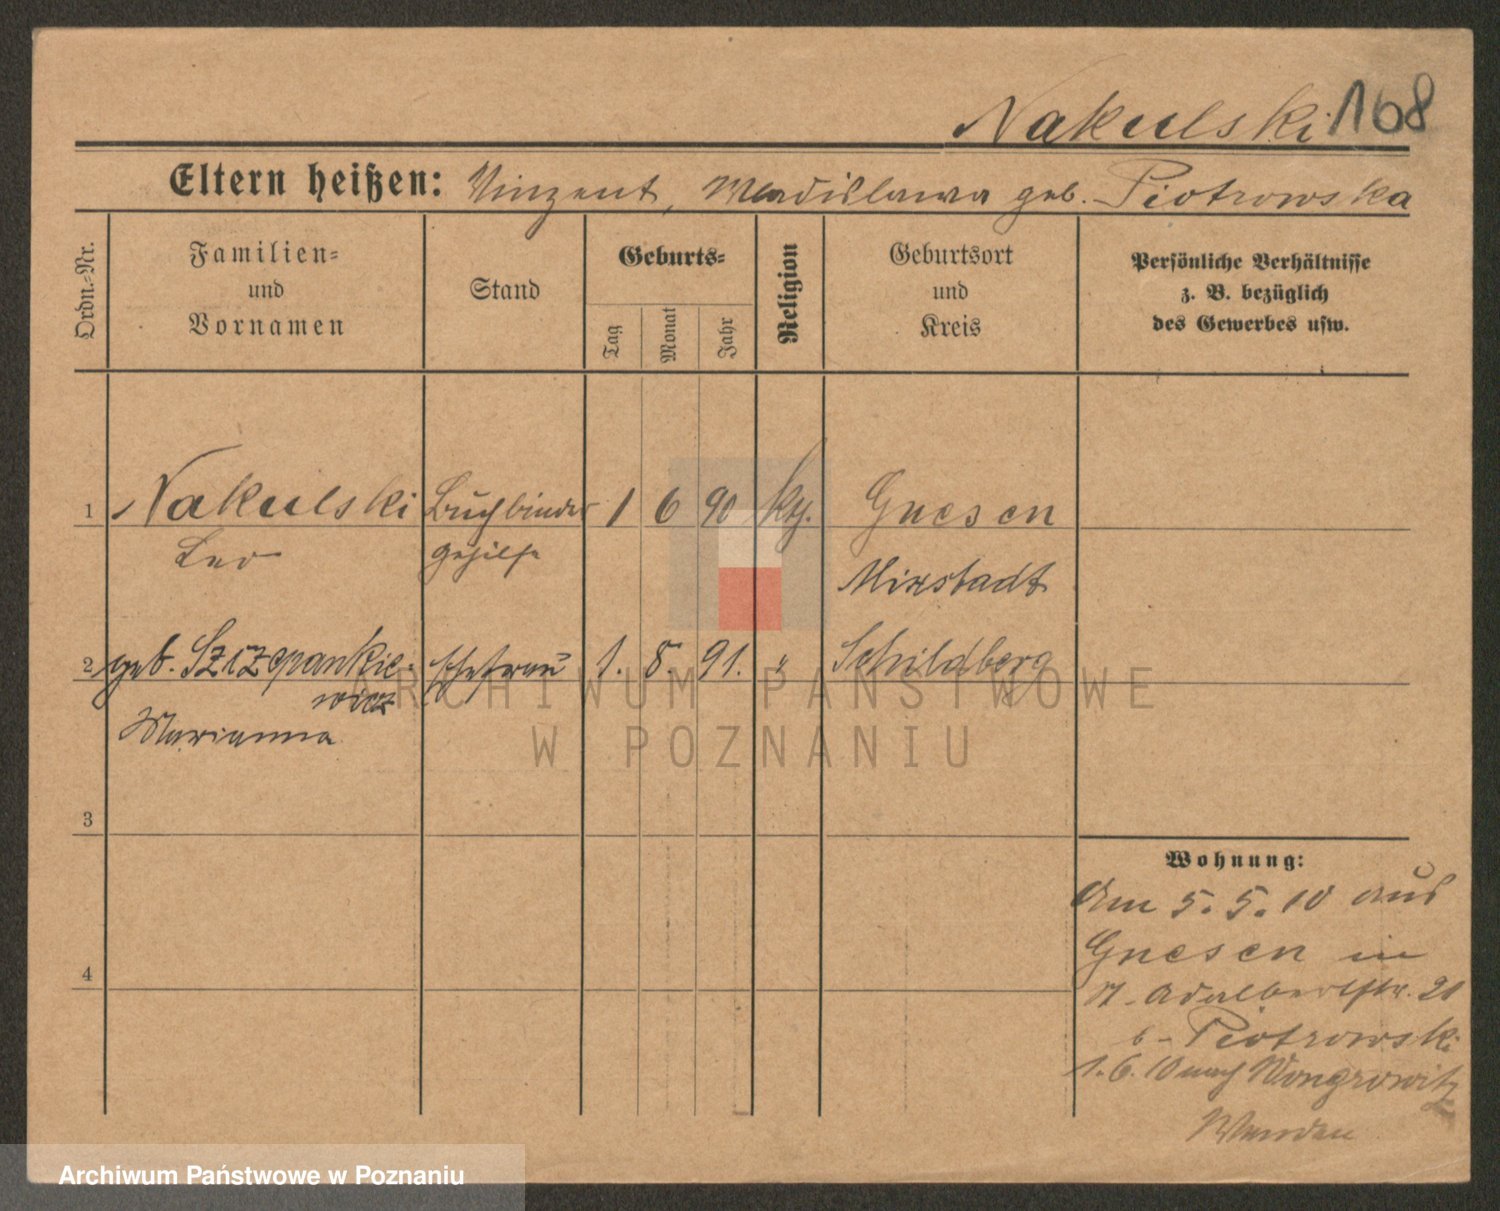 Nakulski 168
Eltern heißen: Vinzent, Wladislawa geb. Piotrowska
Ordn.-Nr.
Familien- und Vornamen
Stand
Geburts-
Tag
Monat
Jahr
Religion
Geburtsort und Kreis
Persönliche Verhältnisse
z. B. bezüglich
des Gewerbes usw.
1 Nakulski Buchbinder 1 6 90 kth. Gnesen
Leo gehilfe
Mixstadt
2 geb. Szczepankie- Ehefrau 1. 8. 91. " Schildberg
wicz
Marianna
3
4
Wohnung:
Am 5. 5. 10 aus
Gnesen in
St. Adalbertstr. 21
b. Piotrowski
1. 6. 10 nach Wongrowitz
ARCHIWUM PAŃSTWOWE
W POZNANIU
Archiwum Państwowe w Poznaniu